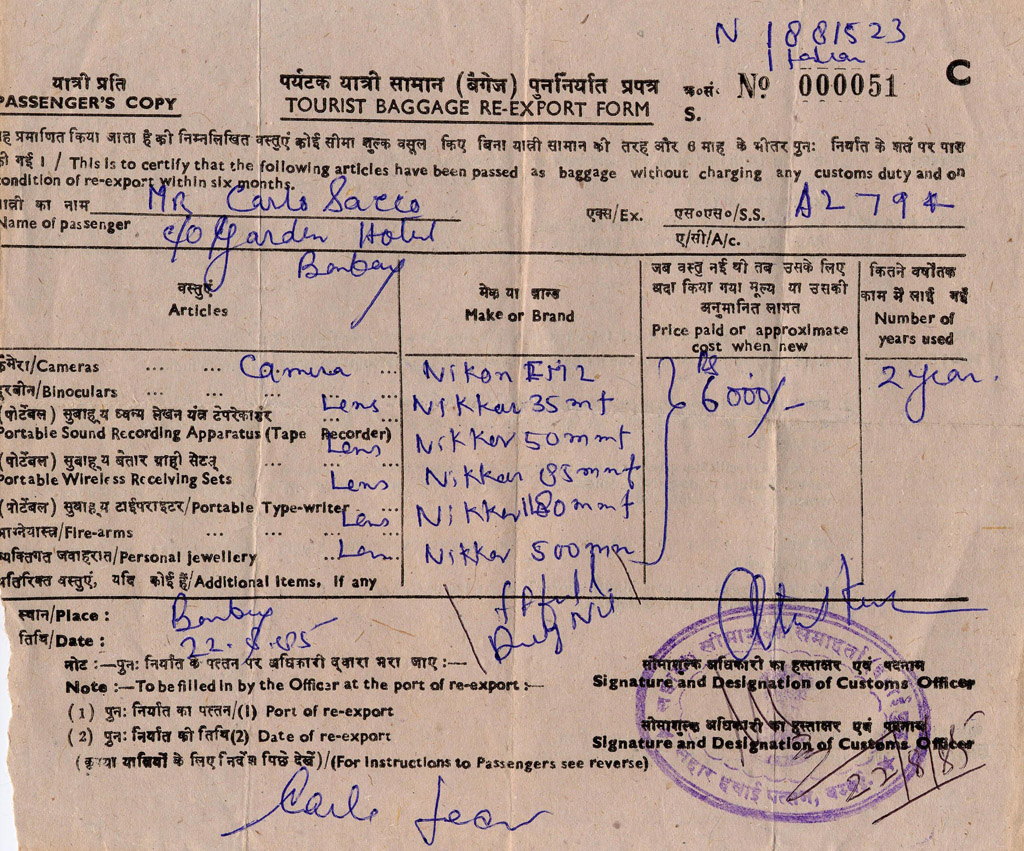 N 1881523
Italian
यात्री प्रति
PASSENGER'S COPY
पर्यटक यात्री सामान (बैगेज) पुनर्निर्यात प्रपत्र
TOURIST BAGGAGE RE-EXPORT FORM
क्र०सं०
S.
No 000051
C
ह प्रमाणित किया जाता है की निम्नलिखित वस्तुएं कोई सीमा शुल्क वसूल किए बिना यात्री सामान की तरह और 6 माह के भीतर पुनः निर्यात के शर्त पर पास
की गई। / This is to certify that the following articles have been passed as baggage without charging any customs duty and on
condition of re-export within six months.
ात्री का नाम MR Carlo Sacco
Name of passenger c/o Garden Hotel
Bombay
एक्स/Ex. एस०एस०/S.S. A2 79
ए/सी/A/c.
वस्तुएं
Articles
मेक या ब्रान्ड
Make or Brand
जब वस्तु नई थी तब उसके लिए
अदा किया गया मूल्य या उसकी
अनुमानित लागत
Price paid or approximate
cost when new
कितने वर्षोंतक
काम में लाई गई
Number of
years used
कैमेरा/Cameras ... ... Camera Nikon FM2 Rs 6000/- 2 year.
दूरबीन/Binoculars ... Lens Nikker 35 mm
(पोर्टेबल) सुवाह्य ध्वन्य लेखन यंत्र टेपरेकार्डर
Portable Sound Recording Apparatus (Tape Recorder) Lens Nikker 50 mm
(पोर्टेबल) सुवाह्य बेतार ग्राही सेटस्
Portable Wireless Receiving Sets Lens Nikker 85 mm
(पोर्टेबल) सुवाह्य टाईपराइटर/Portable Type-writer Lens Nikker 180 mm
आग्नेयास्त्र/Fire-arms
व्यक्तिगत जवाहरात/Personal jewellery Lens Nikker 500 mm
अतिरिक्त वस्तुएं, यदि कोई हैं/Additional items, if any
स्थान/Place : Bombay
तिथि/Date : 22.8.85
Duty Nil
नोट :—पुनः निर्यात के पत्तन पर अधिकारी द्वारा भरा जाए :—
Note :—To be filled in by the Officer at the port of re-export :—
(1) पुनः निर्यात का पत्तन/(1) Port of re-export
(2) पुनः निर्यात की तिथि(2) Date of re-export
(कृपया यात्रियों के लिए निर्देश पिछे देखें)/(For Instructions to Passengers see reverse)
सीमाशुल्क अधिकारी का हस्ताक्षर एवं पदनाम
Signature and Designation of Customs Officer
सीमाशुल्क अधिकारी का हस्ताक्षर एवं पदनाम
Signature and Designation of Customs Officer
22/8/85
Carlo